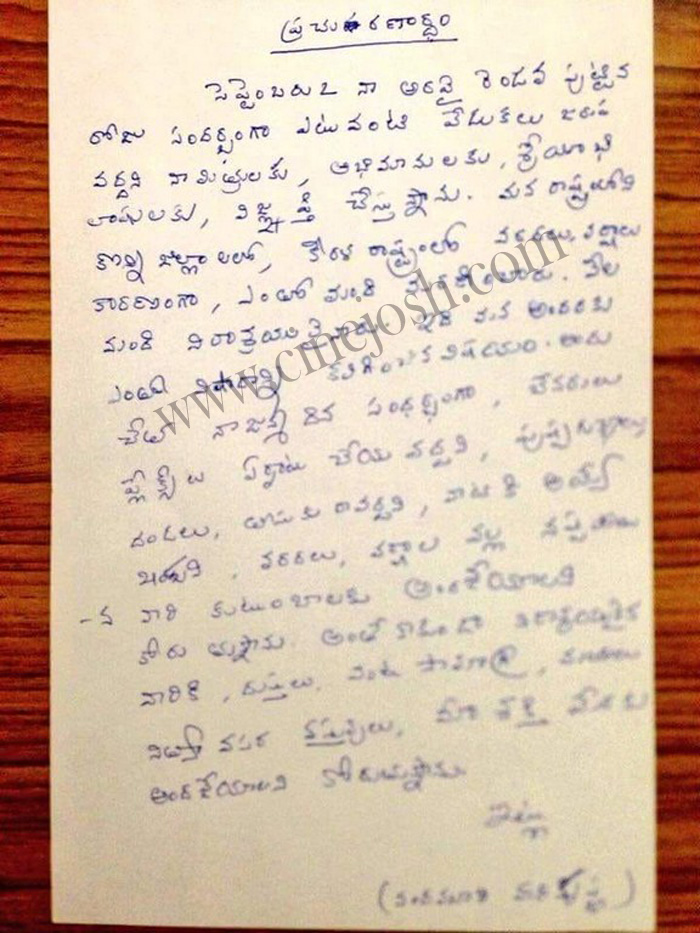 ప్రచురణార్థం
సెప్టెంబరు 2 నా అరవై రెండవ పుట్టిన
రోజు సందర్భంగా ఎటువంటి వేడుకలు జరుప
వద్దని నా మిత్రులకు, అభిమానులకు, శ్రేయోభి
లాషులకు, విజ్ఞప్తి చేస్తున్నాను. మన రాష్ట్రంలోని
కొన్ని జిల్లాలలో, కేరళ రాష్ట్రంలో వరదలు, వర్షాలు
కారణంగా, ఎంతో మంది మరణించారు. వేల
మంది నిరాశ్రయులైనారు. ఇది మన అందరికు
ఎంతో విషాదాన్ని కలిగించిన విషయం. అందు
చేత నా జన్మ దిన సందర్భంగా, బేనరులు
ఫ్లెక్సీలు ఏర్పాటు చేయవద్దని, పుష్పగుచ్ఛాలు
దండలు, తీసుకురావద్దని, వాటికి అయ్యే
ఖర్చుని, వరదలు, వర్షాల వల్ల నష్టపోయి
-న వారి కుటుంబాలకు అందజేయాలని
కోరుతున్నాను. అంతే కాకుండా నిరాశ్రయులైన
వారికి, దుస్తులు, వంట సామాగ్రి, మందులు
నిత్యావసర వస్తువులు, మీ శక్తి మేరకు
అందజేయాలని కోరుతున్నాను.
ఇట్లు
(నందమూరి హరికృష్ణ)
www.cinejosh.com